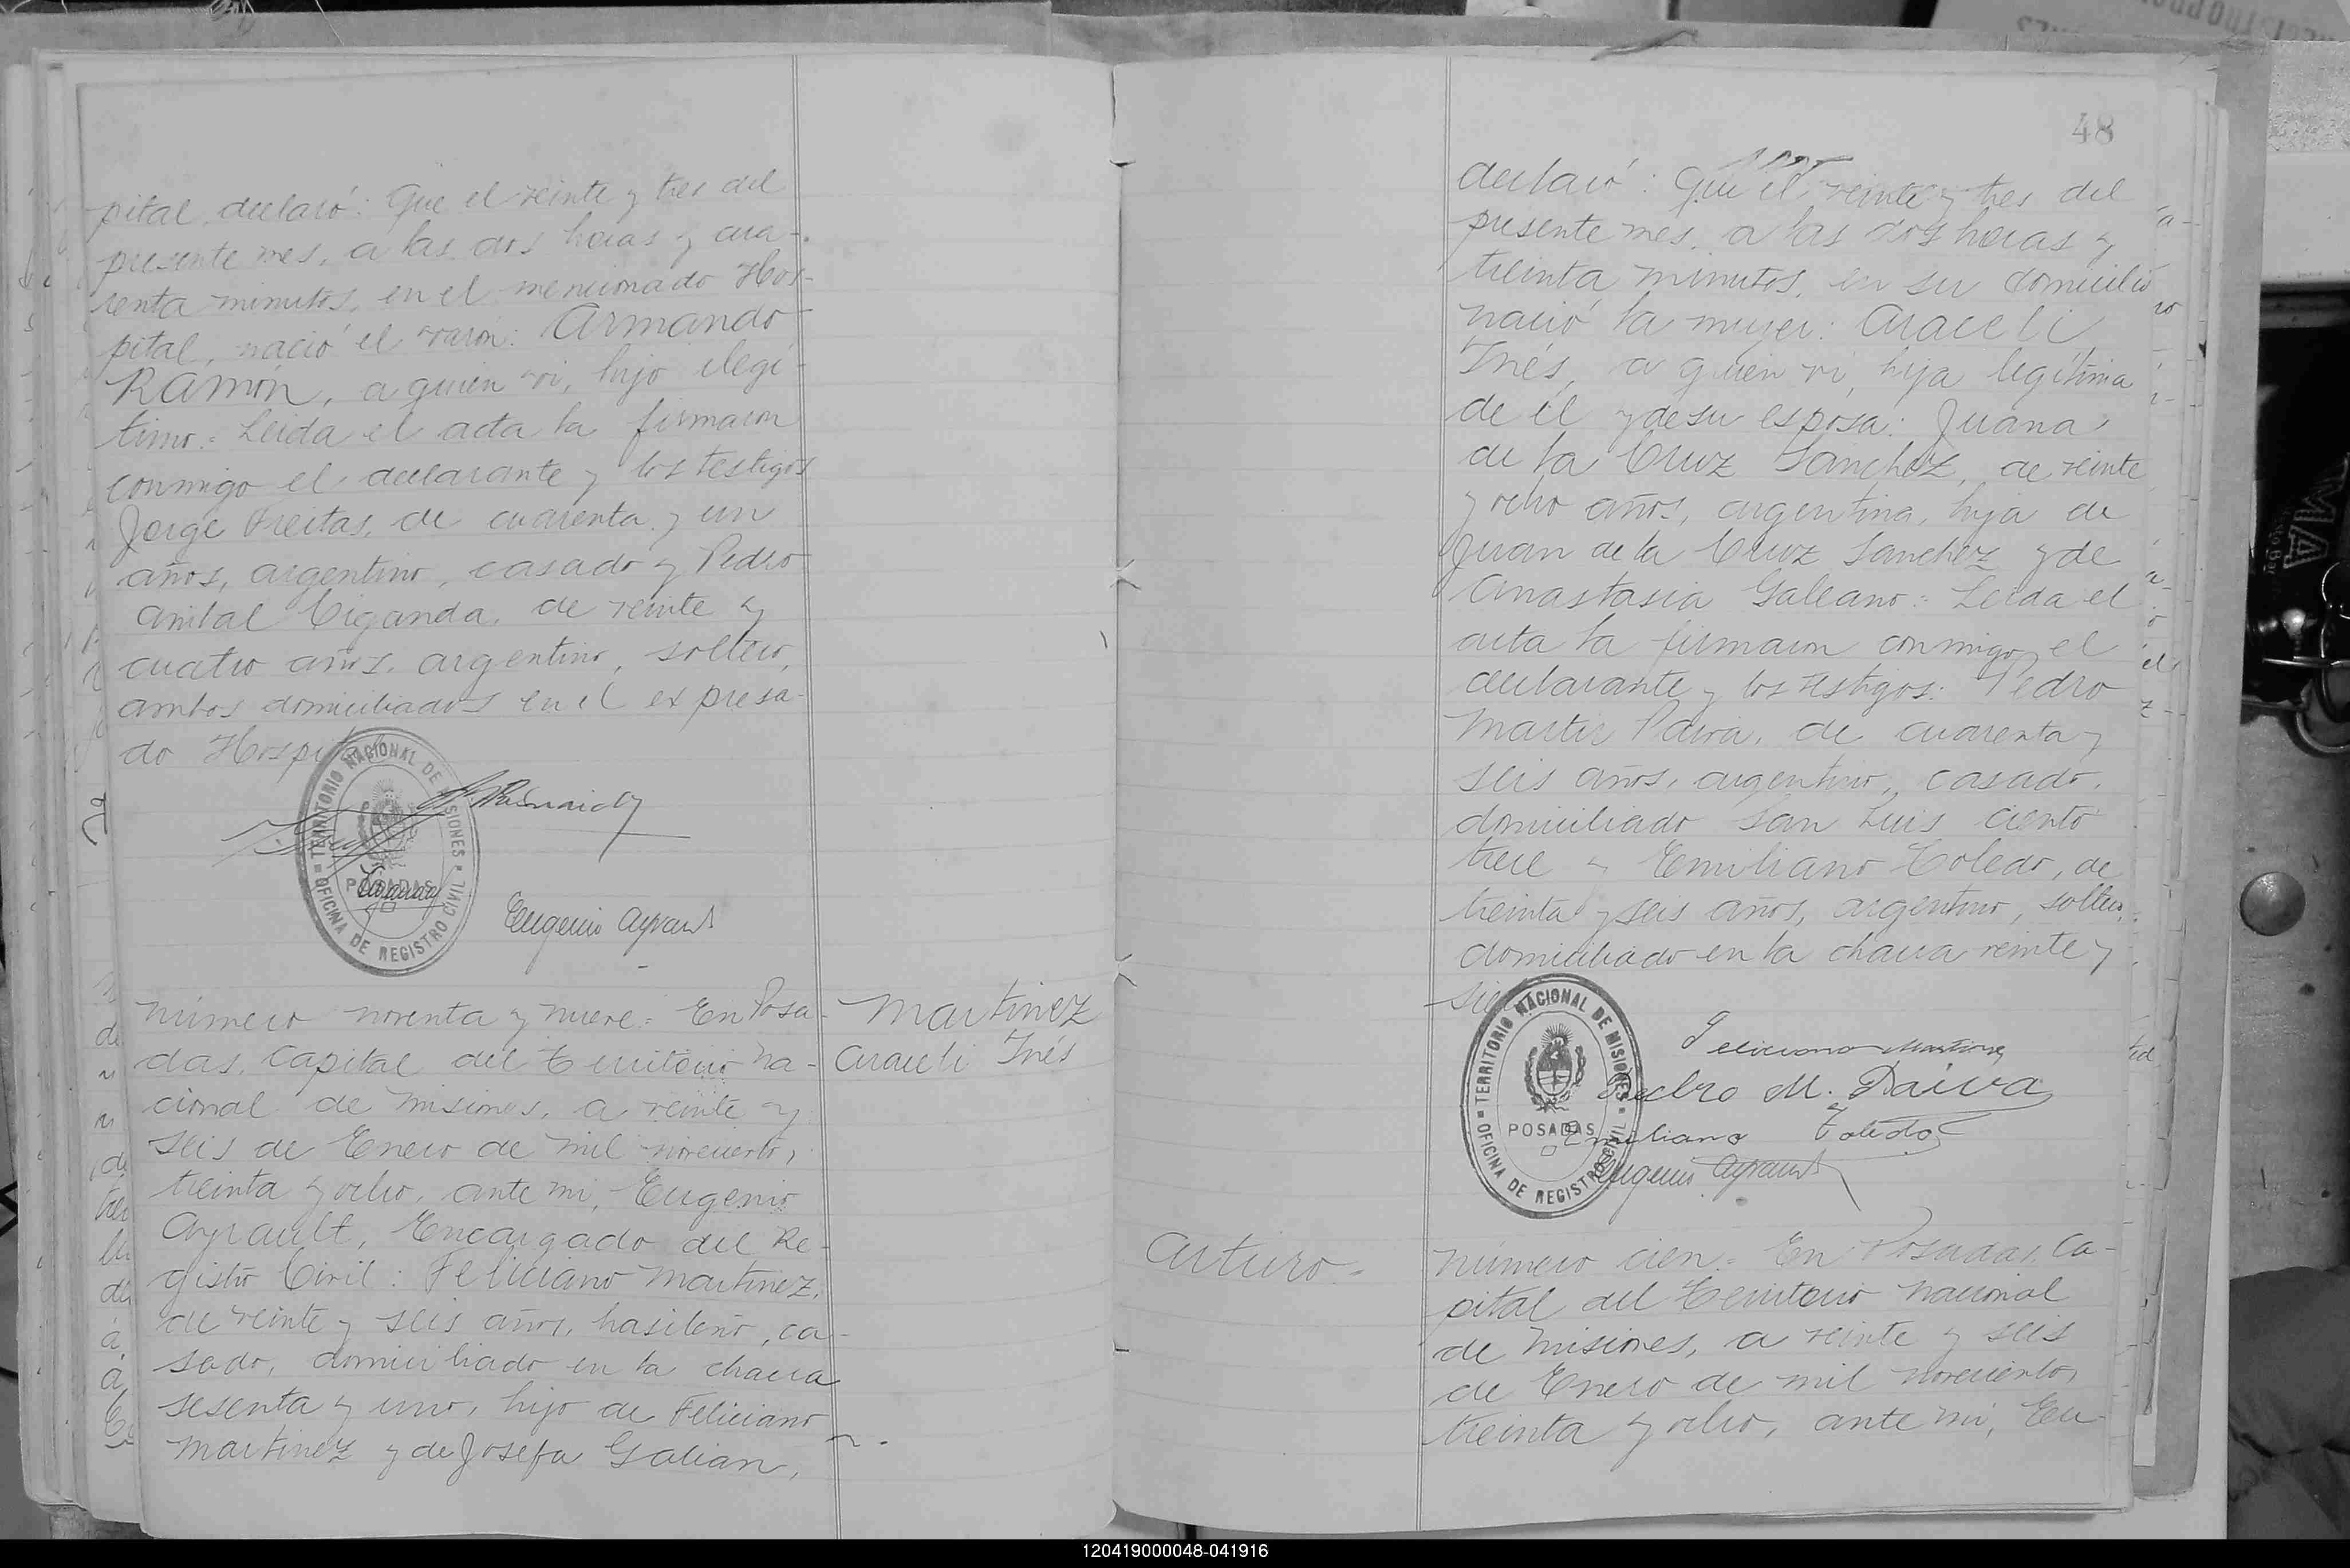 pital, declaró: Que el veinte y tres del
presente mes, a las dos horas y cua-
renta minutos, en el mencionado Hos-
pital, nació el varon: Armando
Ramón, a quien vi, hijo ilegí-
timo.= Leida el acta la firmaron
conmigo el declarante y los testigos
Jorge Freitas, de cuarenta y un
años, argentino, casado y Pedro
Anibal Ciganda, de veinte y
cuatro años, argentino, soltero,
ambos domiciliados en el expresa-
do Hospital
TERRITORIO NACIONAL DE MISIONES
POSADAS
OFICINA DE REGISTRO CIVIL
Eugenio Ayrault
Número noventa y nueve= En Posa-
das, Capital del Territorio Na-
cional de Misiones, a veinte y
seis de Enero de mil novecientos
treinta y ocho, ante mi, Eugenio
Ayrault, Encargado del Re-
gistro Civil: Feliciano Martinez,
de veinte y seis años, brasileño, ca-
sado, domiciliado en la chacra
sesenta y uno, hijo de Feliciano
Martinez y de Josefa Galian,
Martinez
Araceli Inés
48
declaró: Que el veinte y tres del
presente mes, a las dos horas y
treinta minutos, en su domicilio
nació la mujer: Araceli
Inés, a quien vi, hija legítima
de él y de su esposa: Juana
de la Cruz Sanchez, de veinte
y ocho años, argentina, hija de
Juan de la Cruz Sanchez y de
Anastasia Galeano= Leida el
acta la firmaron conmigo el
declarante y los testigos: Pedro
Martir Paiva, de cuarenta y
seis años, argentino, casado,
domiciliado San Luis ciento
trece y Emiliano Toledo, de
treinta y seis años, argentino, soltero,
domiciliado en la chacra veinte y
TERRITORIO NACIONAL DE MISIONES
POSADAS
OFICINA DE REGISTRO CIVIL
Feliciano Martinez
Pedro M. Paiva
Emiliano Toledo
Eugenio Ayrault
Arturo.=
Número cien.= En Posadas, Ca-
pital del Territorio Nacional
de Misiones, a veinte y seis
de Enero de mil novecientos
treinta y ocho, ante mi, Eu-
120419000048-041916